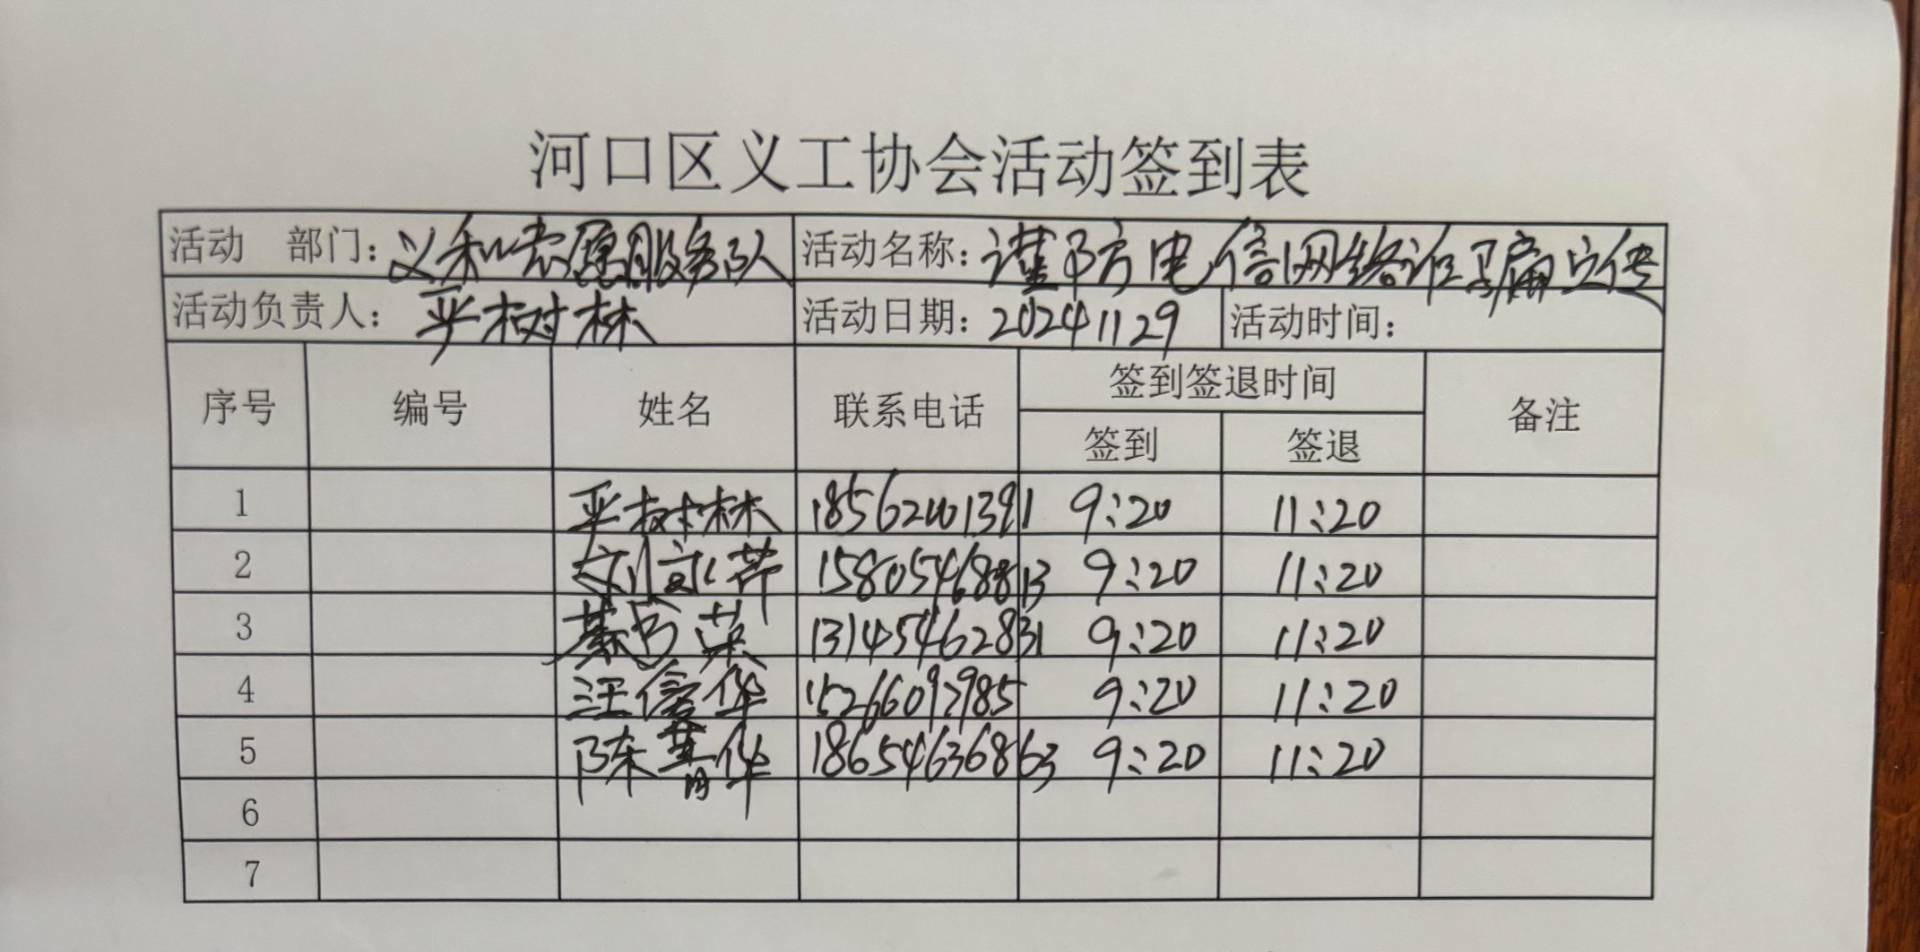 河口区义工协会活动签到表
活动 部门：义和志愿服务队 活动名称：谨防电信网络诈骗宣传
活动负责人：平树林 活动日期：20241129 活动时间：
序号 编号 姓名 联系电话 签到签退时间 备注
签到 签退
1 平树林 18562001391 9:20 11:20
2 刘 芹 15805468813 9:20 11:20
3 綦 荣 13145462831 9:20 11:20
4 汪信华 15266092985 9:20 11:20
5 陈菁华 18654636863 9:20 11:20
6
7